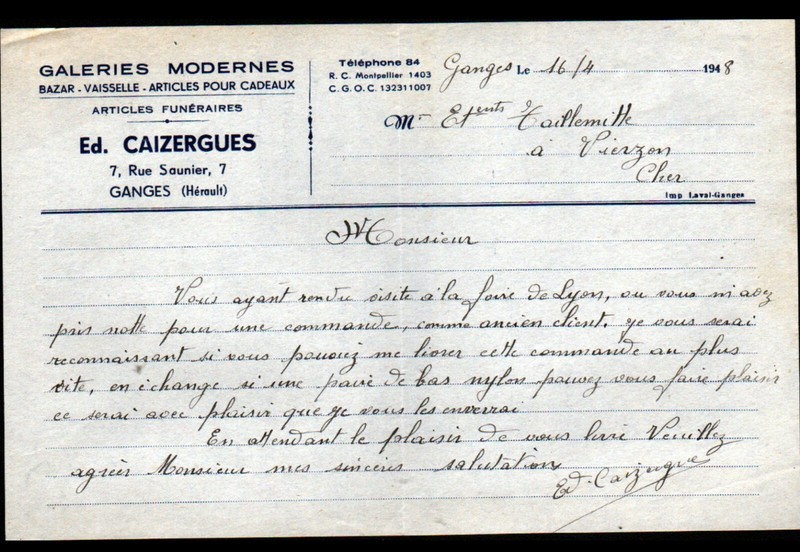 GALERIES MODERNES
BAZAR - VAISSELLE - ARTICLES POUR CADEAUX
ARTICLES FUNÉRAIRES
Ed. CAIZERGUES
7, Rue Saunier, 7
GANGES (Hérault)
Téléphone 84
R. C. Montpellier 1403
C. G. O. C. 132311007
Ganges Le 16/4 1948
M Etents Taillemitte
à Vierzon
Cher
Imp Laval-Ganges
Monsieur
Vous ayant rendu visite à la foire de Lyon, ou vous m'avez
pris notte pour une commande, comme ancien client. je vous serai
reconnaissant si vous pouviez me livrer cette commande au plus
vite, en échange si une paire de bas nylon pouvez vous faire plaisir
ce serai avec plaisir que je vous les enverrai
En attendant le plaisir de vous lire Veuillez
agréer Monsieur mes sincères salutation
Ed. Caizergue